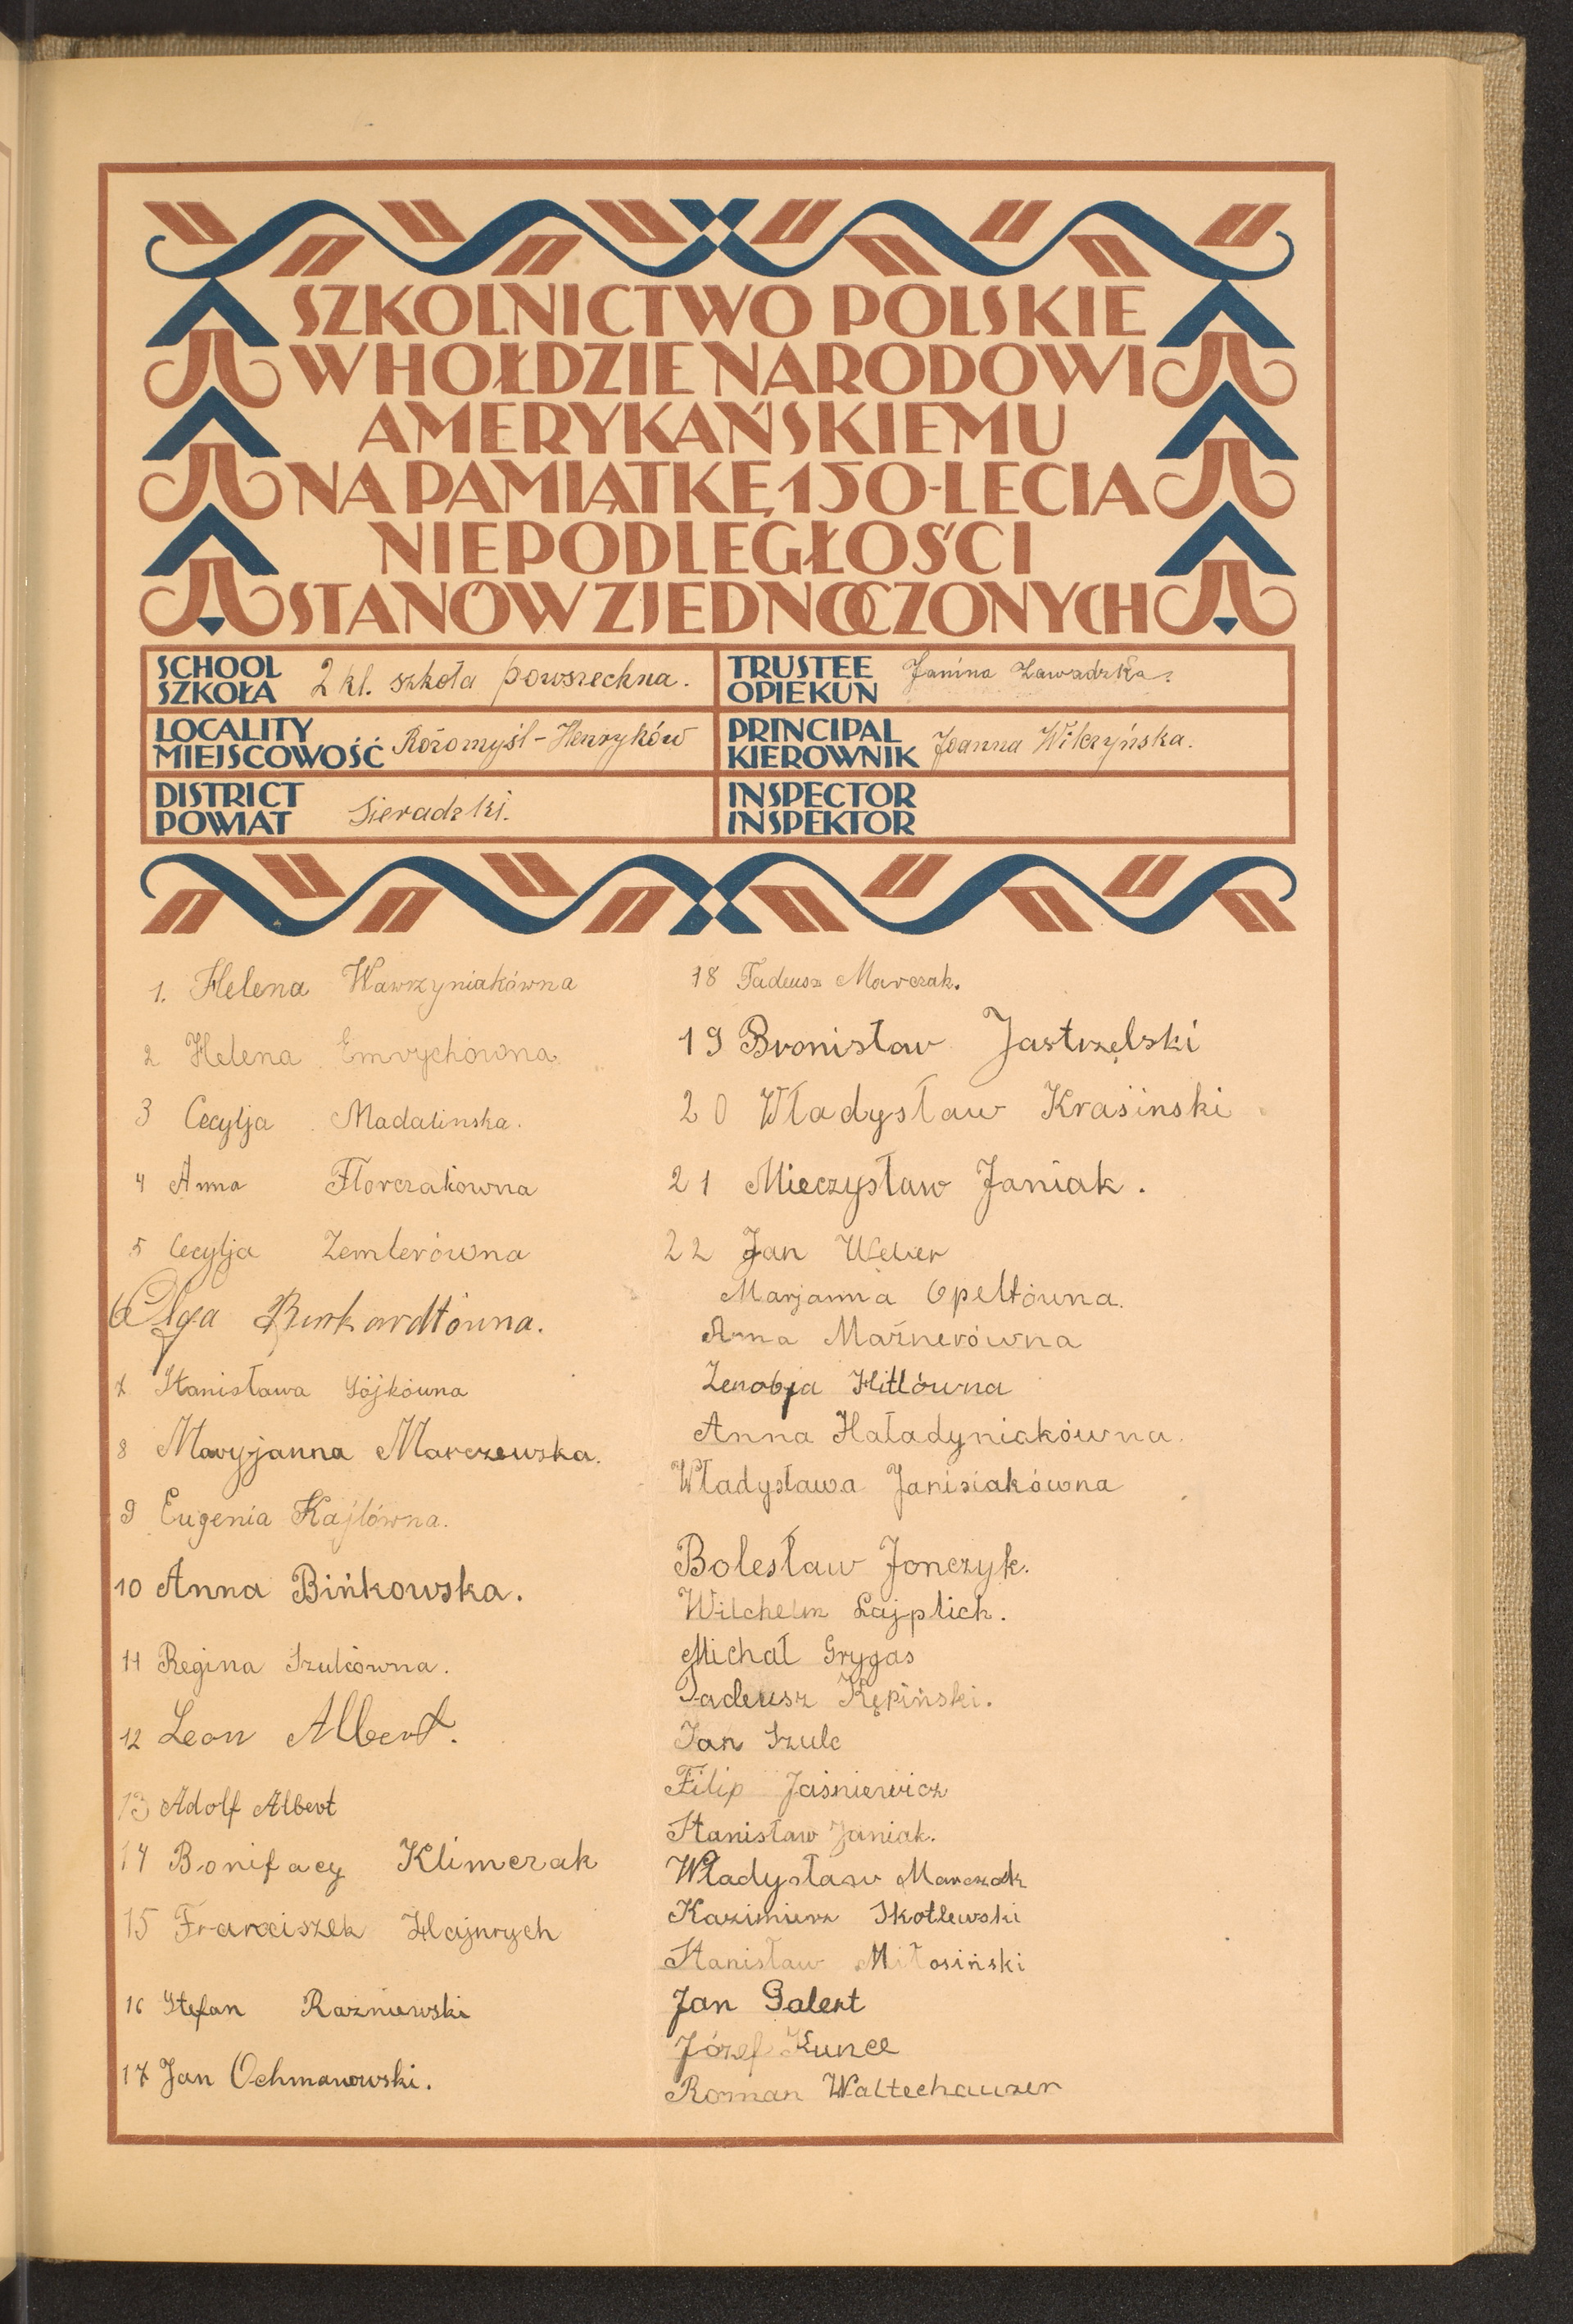 SZKOLNICTWO POLSKIE
W HOŁDZIE NARODOWI
AMERYKAŃSKIEMU
NA PAMIĄTKĘ 150-LECIA
NIEPODLEGŁOŚCI
STANÓW ZJEDNOCZONYCH
SCHOOL
SZKOŁA
2 kl. szkoła powszechna.
TRUSTEE
OPIEKUN
Janina Zawadzka.
LOCALITY
MIEJSCOWOŚĆ
Rożomyśl-Henryków
PRINCIPAL
KIEROWNIK
Joanna Wilczyńska.
DISTRICT
POWIAT
Sieradzki.
INSPECTOR
INSPEKTOR
1. Helena Wawrzyniakówna
2 Helena Emrychówna
3 Cecylja Madalinska.
4 Anna Florczakowna
5 Cecylja Zemlerówna
6 Olga Burkardtówna.
7 Stanisława Sójkówna
8 Maryjanna Marczewska.
9 Eugenia Kajlówna.
10 Anna Bińkowska.
11 Regina Szulcówna.
12 Leon Albert.
13 Adolf Albert
14 Bonifacy Klimczak
15 Franciszek Hajnrych
16 Stefan Razniewski
17 Jan Ochmanowski.
18 Tadeusz Marczak.
19 Bronisław Jastrzęlski
20 Władysław Krasinski
21 Mieczysław Janiak.
22 Jan Weber
Marjanna Opeltówna.
Anna Maźnerówna
Zenobja Hitlówna
Anna Haładyniakówna.
Władysława Janisiakówna
Bolesław Jonczyk.
Wilchelm Lajplich.
Michał Grygas
Tadeusz Kępiński.
Jan Szulc
Filip Jaśniewicz
Stanisław Janiak.
Władysław Marczak
Kazimierz Skotlewski
Stanisław Miłosiński
Jan Galert
Józef Kunce
Roman Waltechauzer